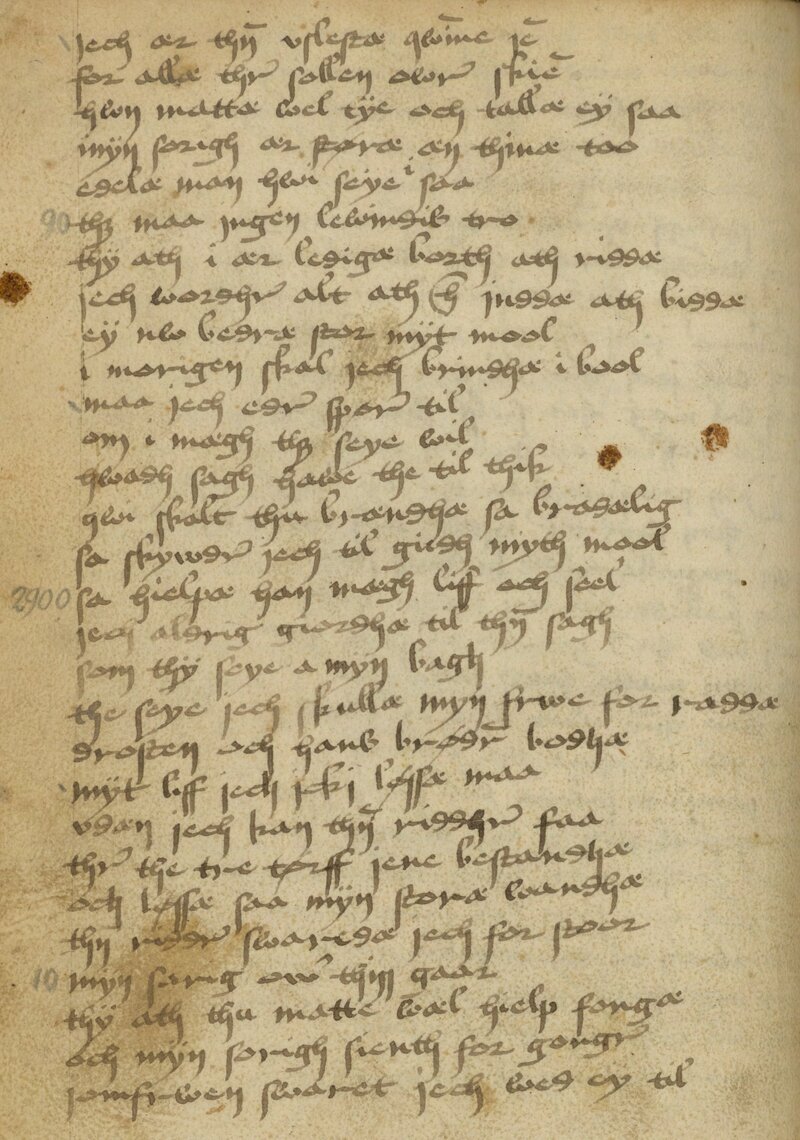 jech ær thn̄ vslestæ qwīne jē
for allæ thr̄ sollen owr̄ skiē
hwn mattæ wel tÿe och tallæ eÿ saa
mÿn sorigh ær størræ æn thinæ too
edelæ man hwi seye i saa
90 thꝫ maa jngen lewindis tro
thÿ ath i ær ledigæ borth ath riddæ
jech wordhr̄ alt ath h̄ juddæ ath biddæ
eÿ uw bedræ stor mÿt mool
i morigen skal jech brindhæ i bool
maa jech edr̄ spør̄ til
om i mægh thꝫ seye wil
hwadh sagh hawe the til thik
hwi skalt thu brændhæ sa bradælig
sa skywdr̄ jech til gudh myth mool
2900 sa hielpæ han mægh liff och seel
jech aldrig giordhæ til thn̄ sagh
som thÿ seye a myn bagh
the seye jech skullæ myn frwe for raddæ
drosten och hans brødr̄ bodhæ
mÿt liff jech jckj løssæ maa
vdæn jech kan thn̄ riddhr̄ faa
thr̄ the tre tørff jene bestandhæ
och løssæ saa mÿn storæ wandhæ
thn riddr̄ swaredæ jech for stoor
10 myn sarig ow̄ thin gaar
thÿ ath thu matte wæl hielp fongæ
och mÿn sorigh sienth for gongr̄
jomfrwen swaret jech wed ey til